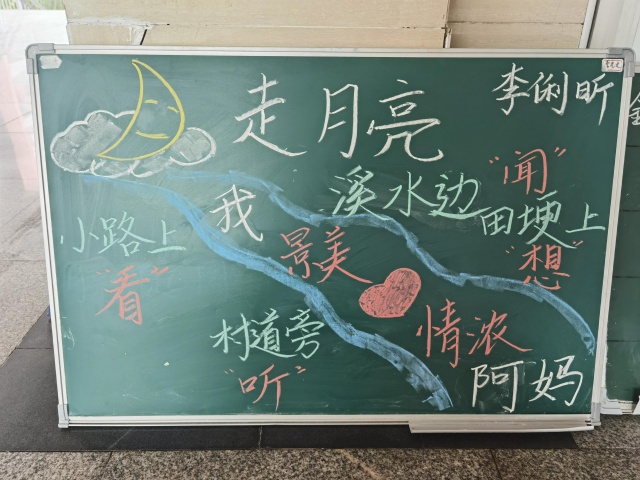 走月亮
李俐昕
"闻"
溪水边
我
田埂上
小路上
景美
"想"
"看"
情浓
村道旁
"听"
阿妈